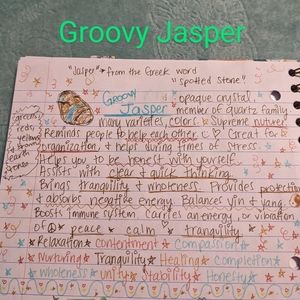 Groovy Jasper
"Jasper" * from the Greek word
"spotted stone"
GROOVY
Jasper
opaque crystal,
member of quartz family
many varieties, colors & supreme nurturer
greens,
reds,
yellows
& browns
earth
tones
Reminds people to help each other Great for
organization, & helps during times of stress.
Helps you to be honest with yourself.
Assists with clear & quick thinking.
Brings tranquility & wholeness. Provides protection
& absorbs negative energy. Balances yin & yang.
Boosts immune system Carries an energy, or vibration
of peace calm tranquility
Relaxation Contentment Compassion
Nurturing Tranquility Healing Completion
Wholeness Unity Stability Honesty